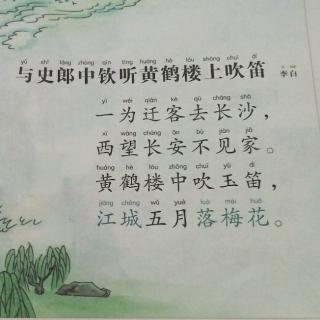 yǔ shǐ láng zhōng qīn tīng huáng hè lóu shàng chuī dí
与史郎中钦听黄鹤楼上吹笛 李白
yì wéi qiān kè qù cháng shā
一为迁客去长沙，
xī wàng cháng ān bú jiàn jiā
西望长安不见家。
huáng hè lóu zhōng chuī yù dí
黄鹤楼中吹玉笛，
jiāng chéng wǔ yuè luò méi huā
江城五月落梅花。